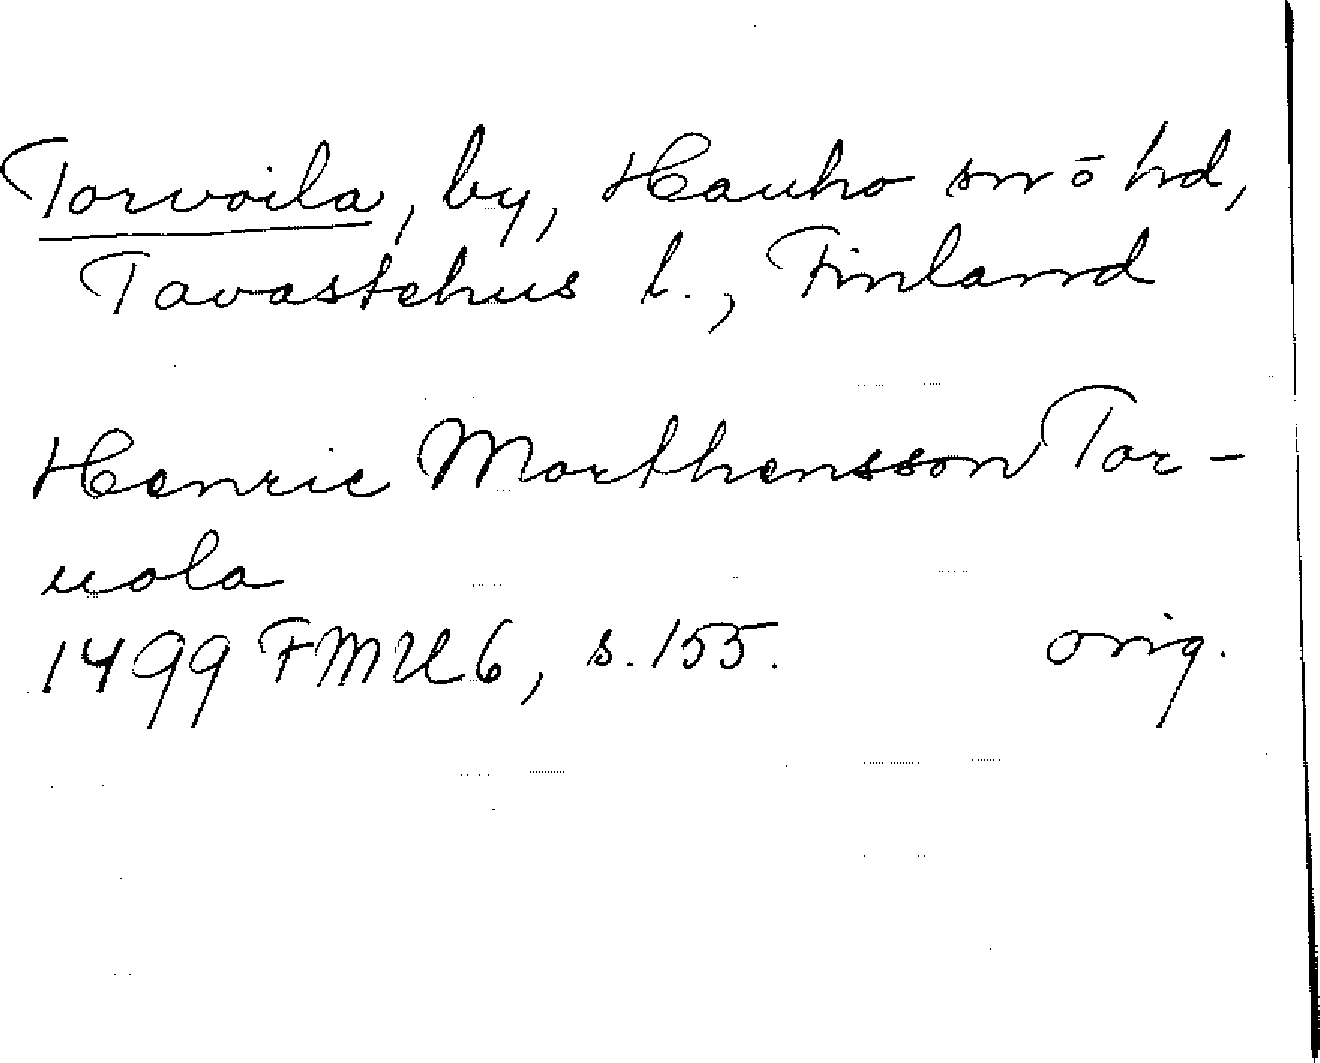 Torvoila, by, Hauho sn o hd,
Tavastehus l., Finland
Henric Morthensson Tor-
uola
1499 FMU 6, s. 155. orig.